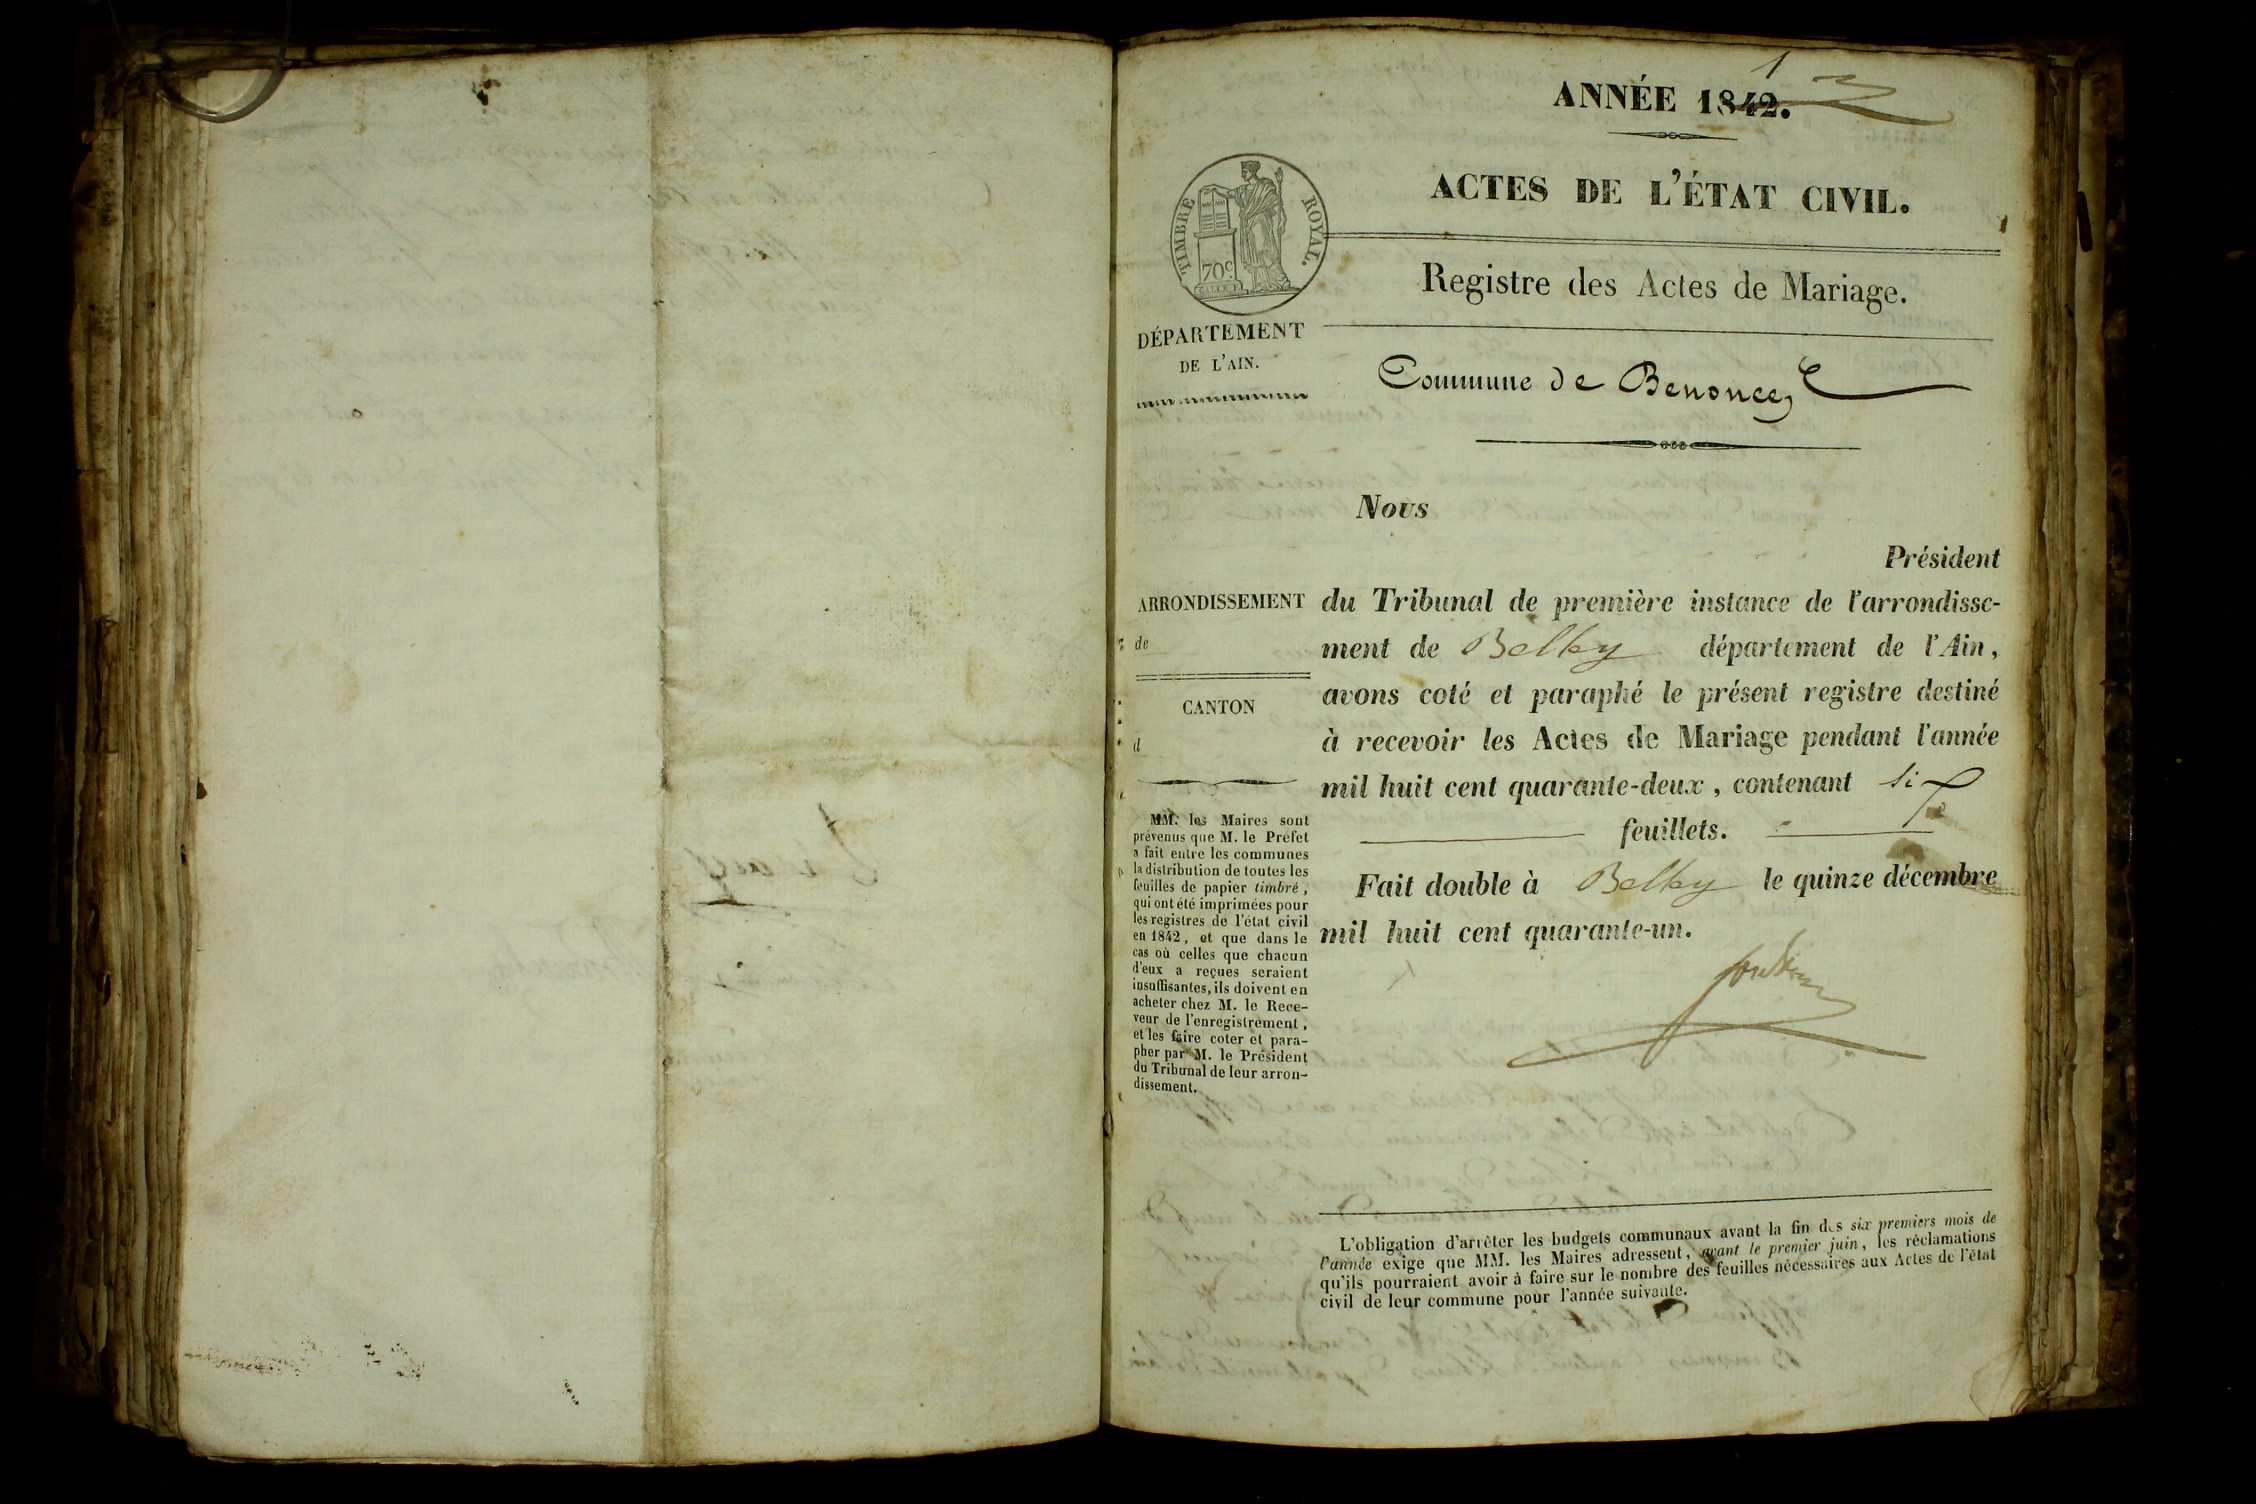 1
ANNÉE 1842.
ACTES DE L'ÉTAT CIVIL.
TIMBRE ROYAL.
70c
Registre des Actes de Mariage.
DÉPARTEMENT
DE L'AIN.
Commune de Benonce
Nous
Président
ARRONDISSEMENT
de
du Tribunal de première instance de l'arrondisse-
ment de Belley département de l'Ain,
avons coté et paraphé le présent registre destiné
à recevoir les Actes de Mariage pendant l'année
mil huit cent quarante-deux, contenant six
feuillets.
Fait double à Belley le quinze décembre
mil huit cent quarante-un.
CANTON
d
MM. les Maires sont
prévenus que M. le Préfet
a fait entre les communes
la distribution de toutes les
feuilles de papier timbré,
qui ont été imprimées pour
les registres de l'état civil
en 1842, et que dans le
cas où celles que chacun
d'eux a reçues seraient
insuffisantes, ils doivent en
acheter chez M. le Rece-
veur de l'enregistrement,
et les faire coter et para-
pher par M. le Président
du Tribunal de leur arron-
dissement.
L'obligation d'arrêter les budgets communaux avant la fin des six premiers mois de
l'année exige que MM. les Maires adressent, avant le premier juin, les réclamations
qu'ils pourraient avoir à faire sur le nombre des feuilles nécessaires aux Actes de l'état
civil de leur commune pour l'année suivante.